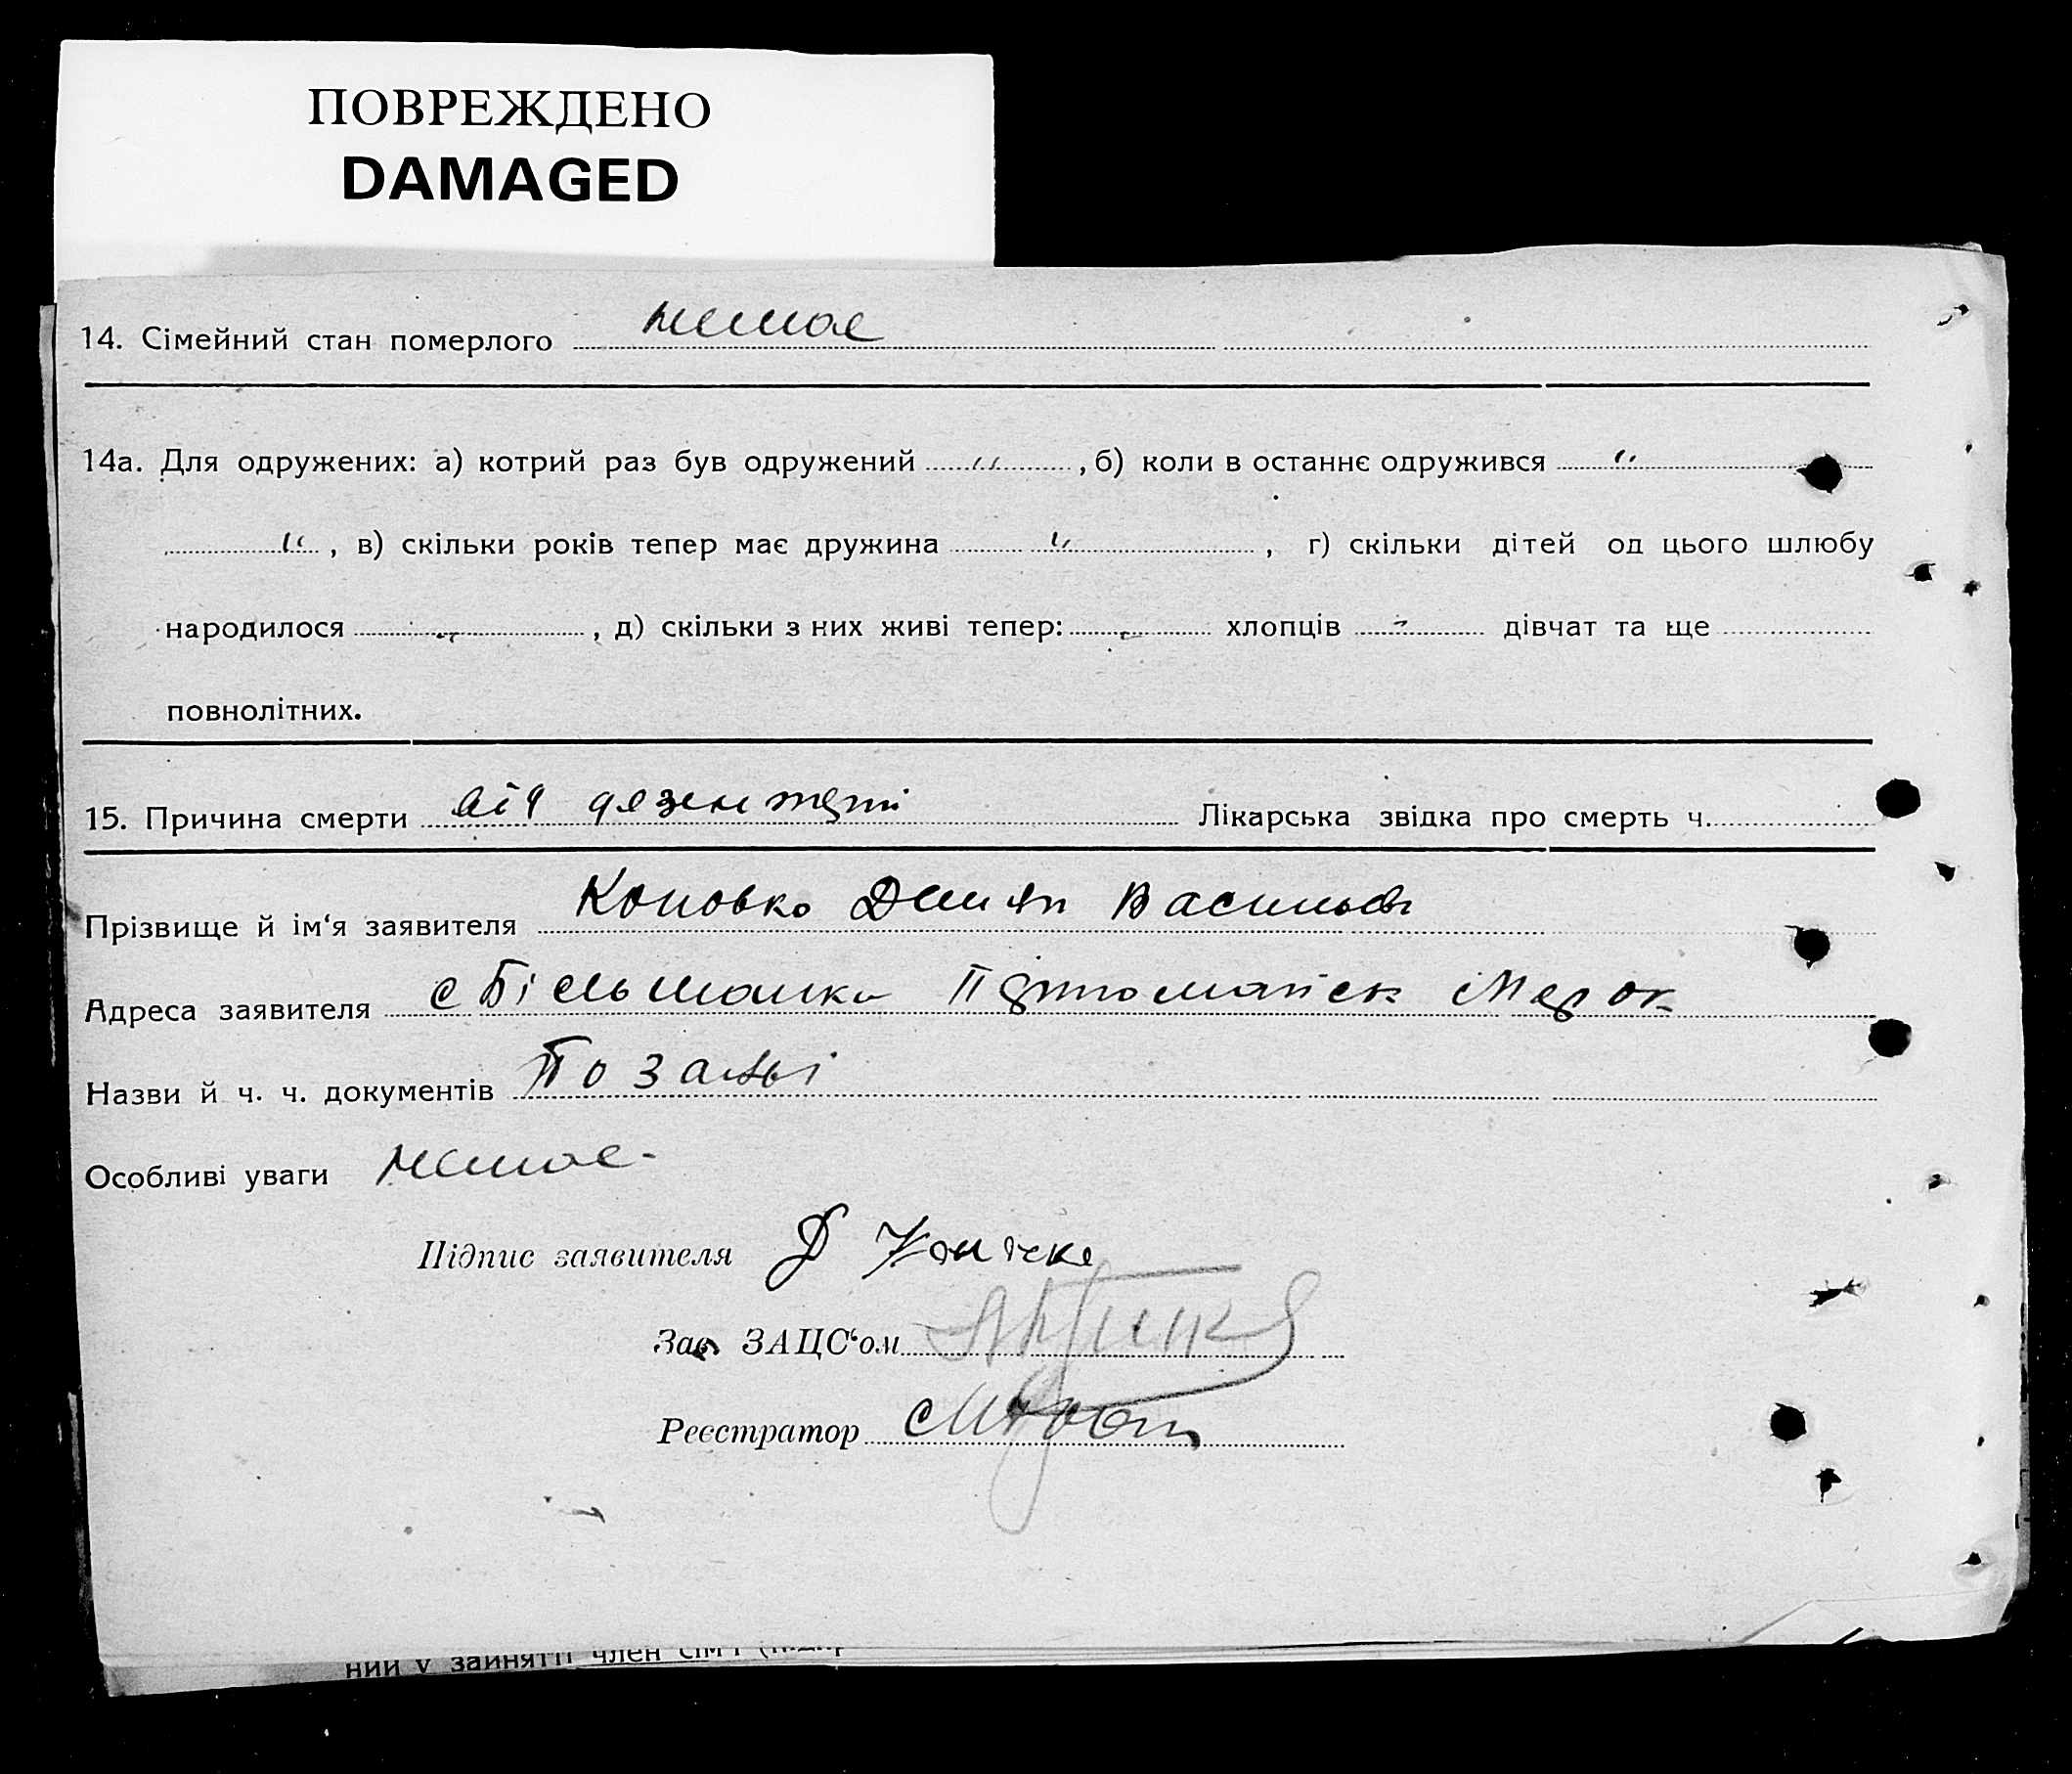 ПОВРЕЖДЕНО
DAMAGED
14. Сімейний стан померлого немає
14а. Для одружених: а) котрий раз був одружений " , б) коли в останнє одружився "
" , в) скільки років тепер має дружина " , г) скільки дітей од цього шлюбу
народилося " , д) скільки з них живі тепер: " хлопців " дівчат та ще
повнолітних.
15. Причина смерти від дезентерії Лікарська звідка про смерть ч.
Прізвище й ім'я заявителя Василь
Адреса заявителя с Більшанка
Назви й ч. ч. документів По заяві
Особливі уваги немає-
Підпис заявителя Д
Зав. ЗАЦС'ом
Реєстратор
ний у зайнятті член сім'ї